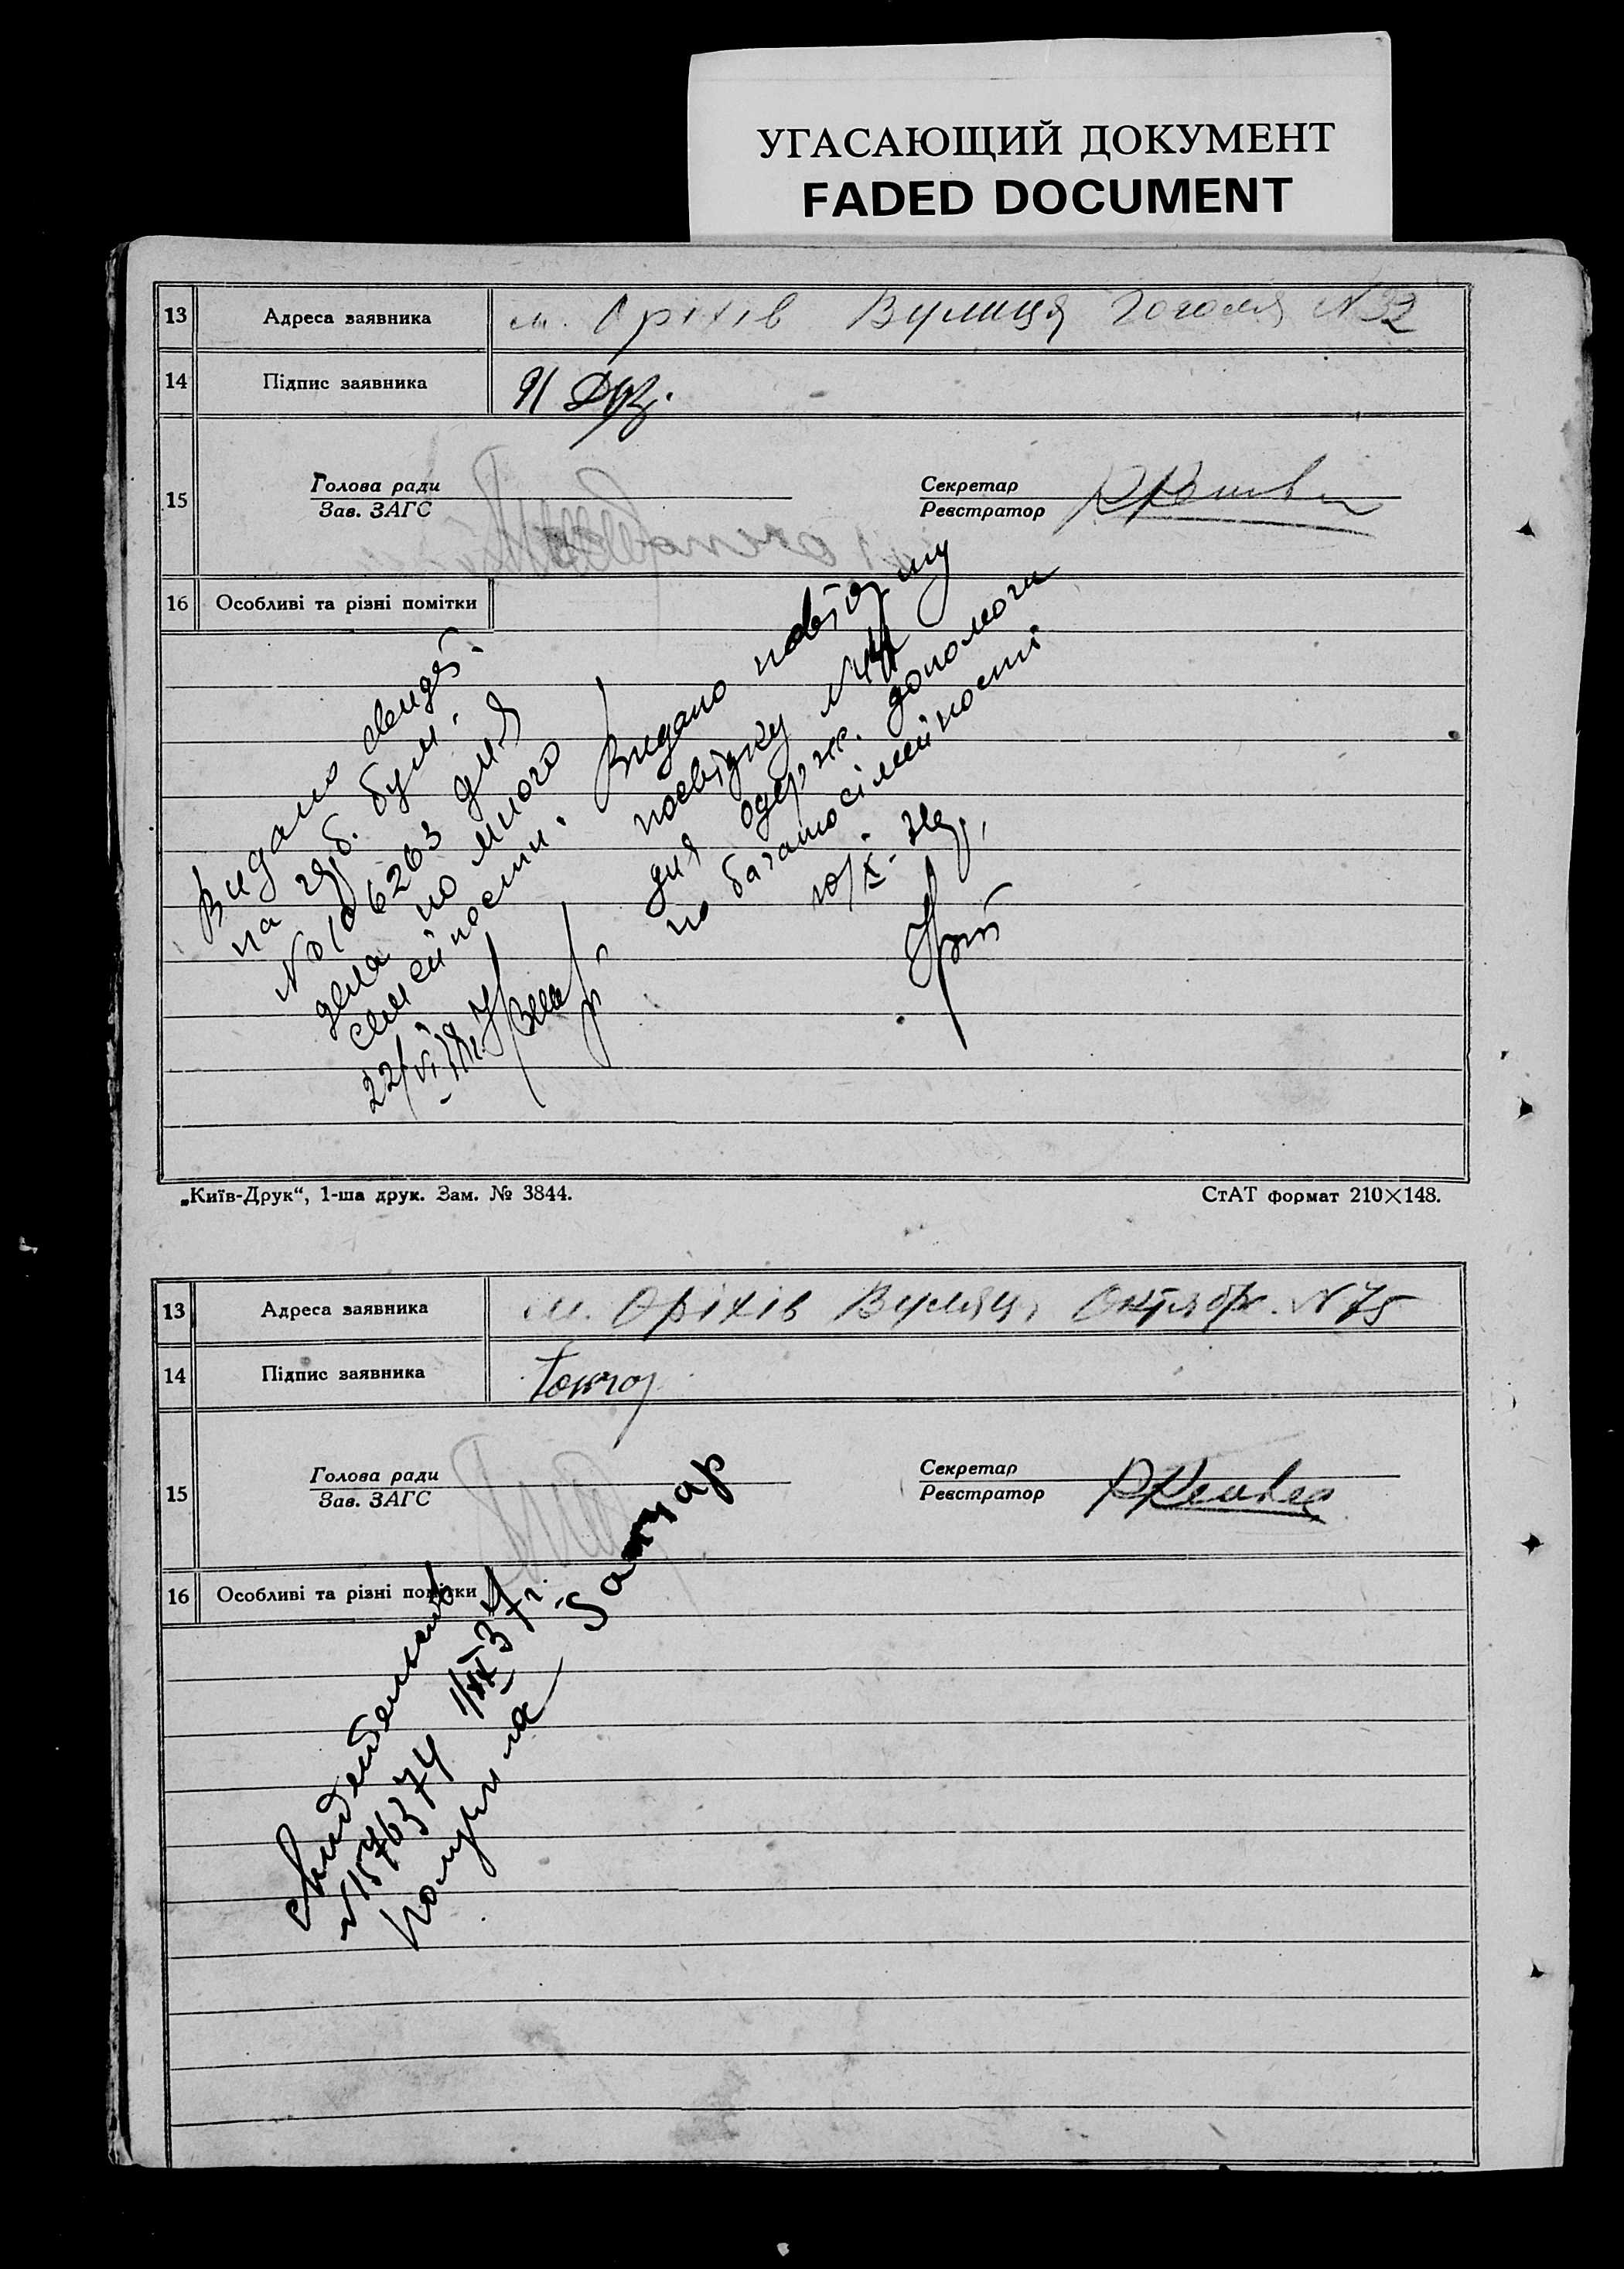 УГАСАЮЩИЙ ДОКУМЕНТ
FADED DOCUMENT
13 Адреса заявника м. Оріхів Вулиця Гоголя N 32
14 Підпис заявника
15 Голова ради
Зав. ЗАГС
Секретар
Реєстратор
16 Особливі та різні помітки
Видано свидет.
на гр. б. бум.
№ 106263 для
дела по много
семейности.
22/VI
Видано повторну
посвідку №
для одерж. допомоги
по багатосімейності
10/X-
„Київ-Друк“, 1-ша друк. Зам. № 3844.
СтАТ формат 210×148.
13 Адреса заявника м. Оріхів Вулиця Октябр. N 75
14 Підпис заявника
15 Голова ради
Зав. ЗАГС
Секретар
Реєстратор
16 Особливі та різні помітки
свидетельство
N 1576374 37 г.
получила